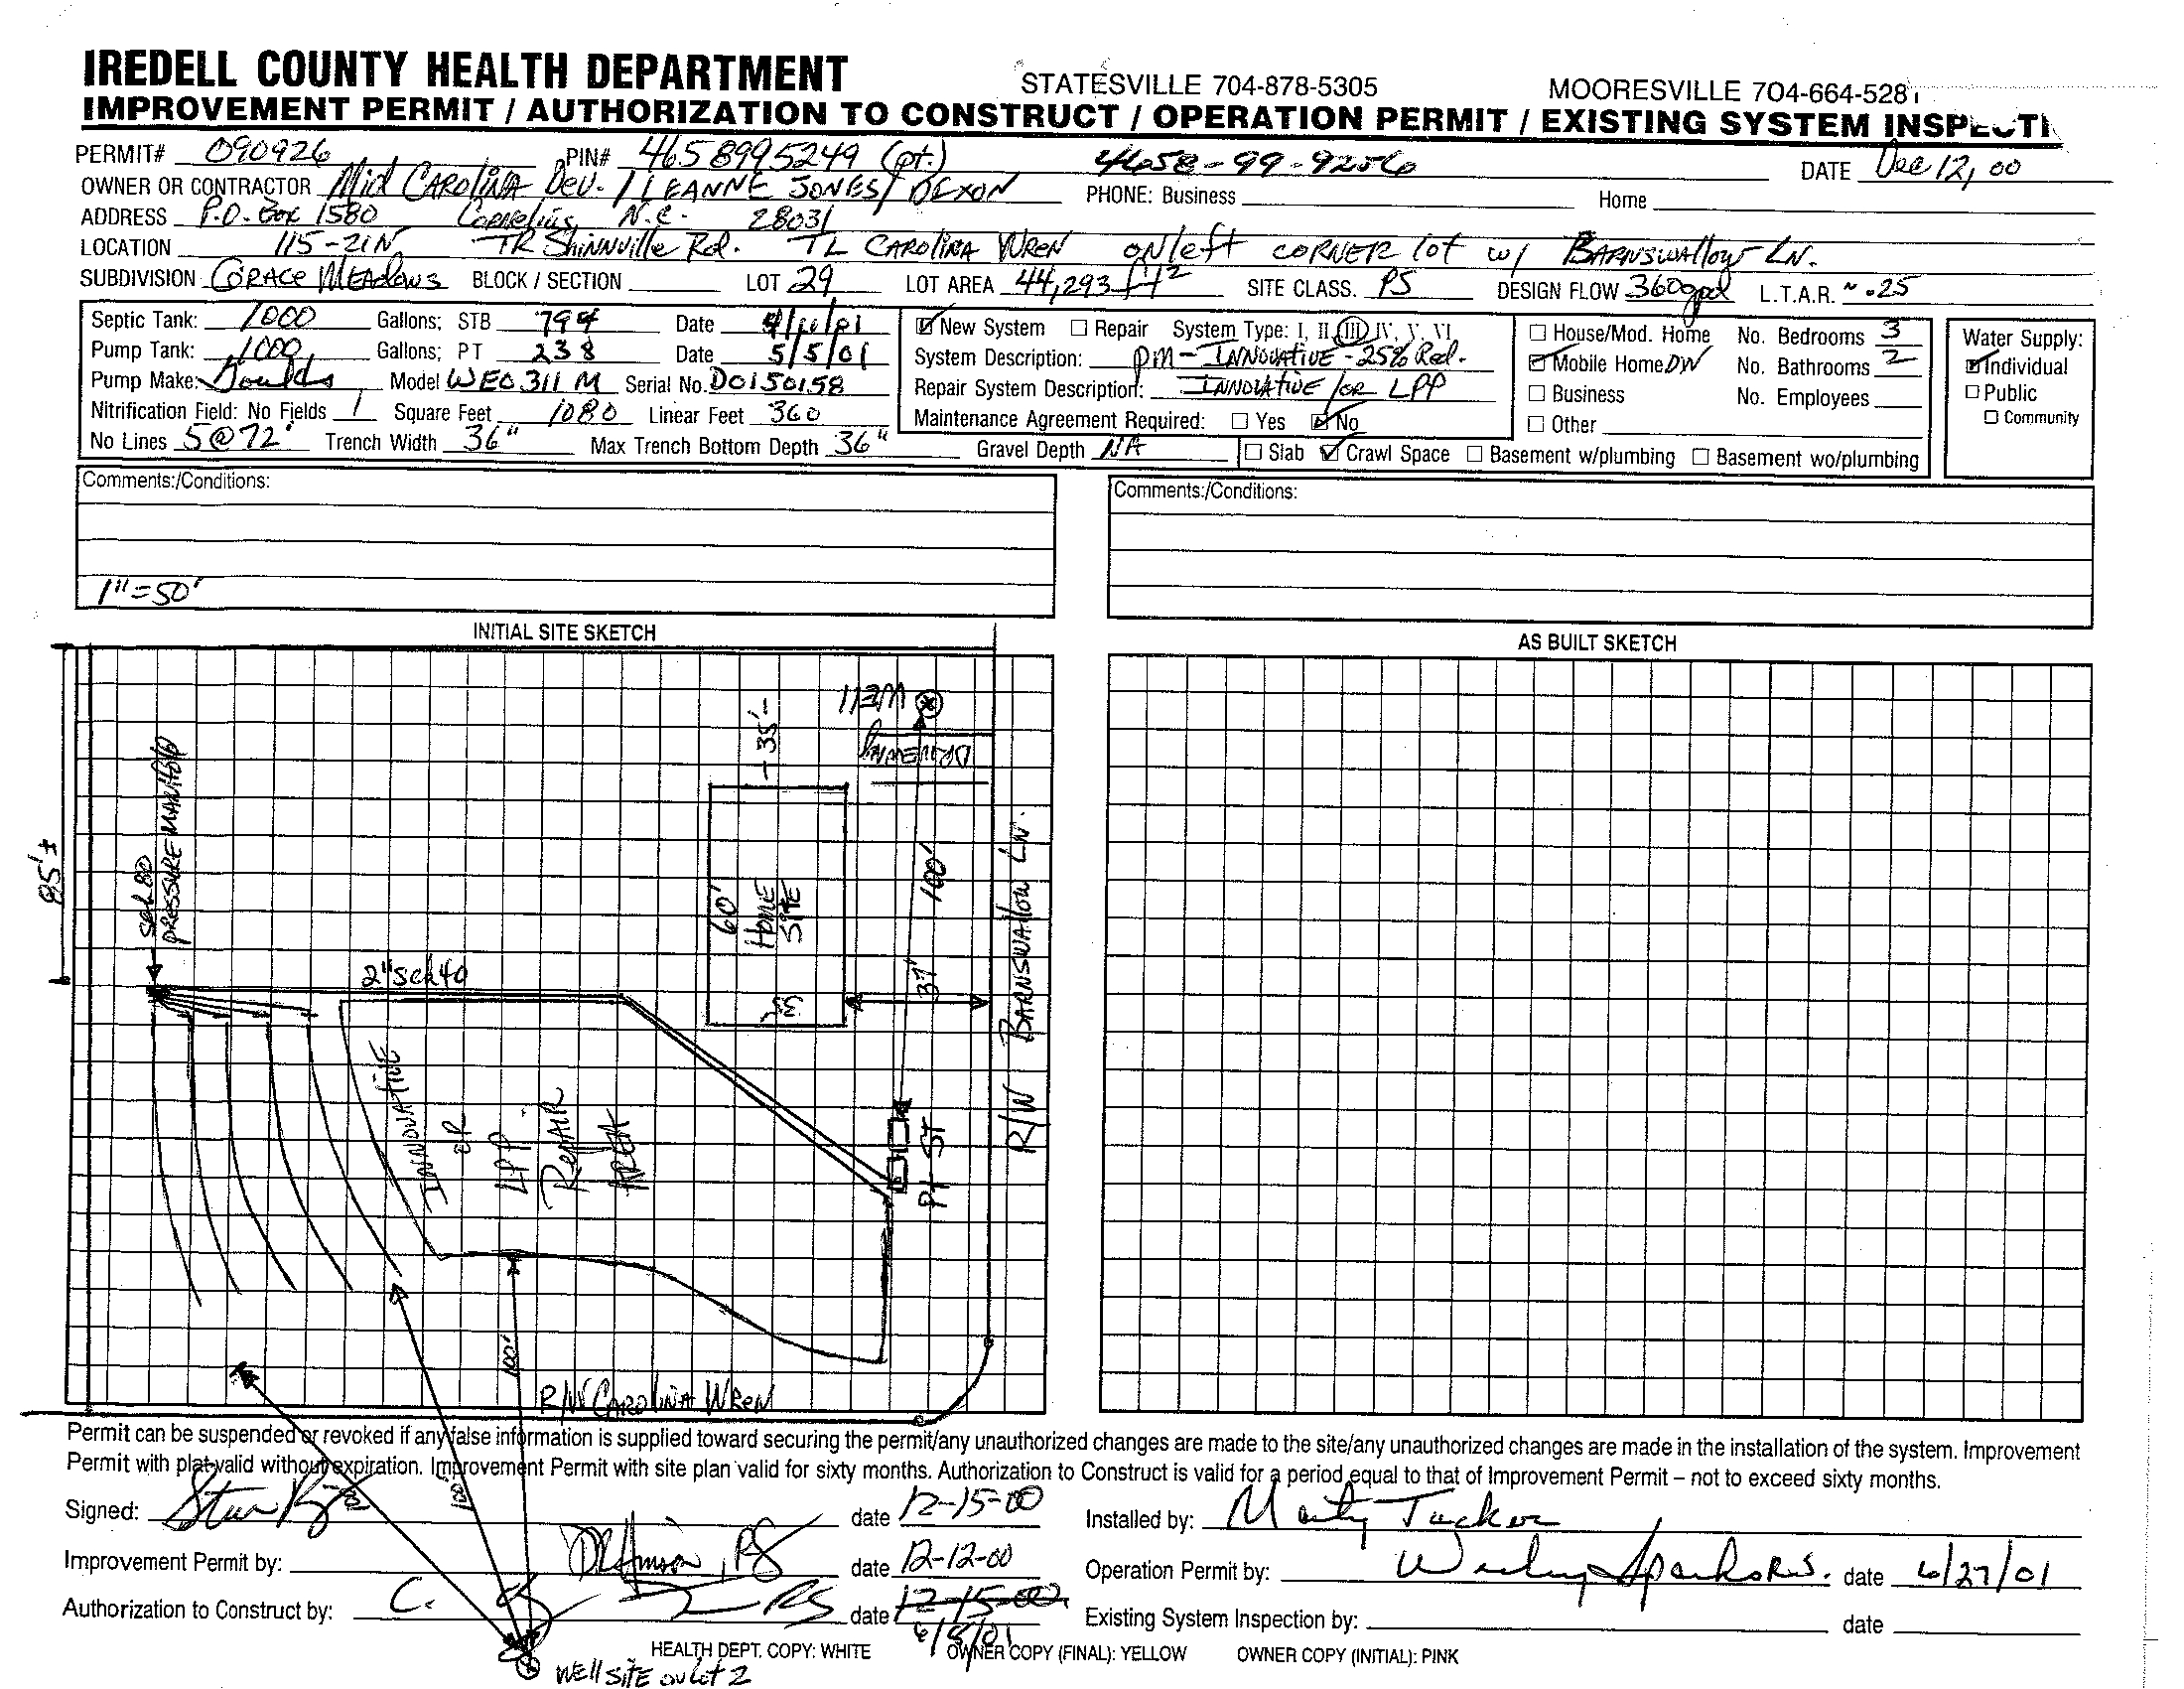 IREDELL COUNTY HEALTH DEPARTMENT STATESVILLE 704-878-5305 MOORESVILLE 704-664-5281
IMPROVEMENT PERMIT / AUTHORIZATION TO CONSTRUCT / OPERATION PERMIT / EXISTING SYSTEM INSPECTI
PERMIT# 090926 PIN# 4658995249 (pt.) 4658-99-9256 DATE Dec 12, 00
OWNER OR CONTRACTOR Mid CAROLINA DEV. / LEANNE JONES / DIXON PHONE: Business Home
ADDRESS P.O. Box 1580 Cornelius, N.C. 28031
LOCATION 115-21N TR Shinnville Rd. TL CAROLINA WREN on left CORNER lot w/ BARNSWAllow LN.
SUBDIVISION GRACE MEAdows BLOCK / SECTION LOT 29 LOT AREA 44,293 ft² SITE CLASS. PS DESIGN FLOW 360gpd L.T.A.R. ~.25
Septic Tank: 1000 Gallons; STB 794 Date
Pump Tank: 1000 Gallons; PT 238 Date 5/5/01
Pump Make: Goulds Model WE0311M Serial No. D0150158
Nitrification Field: No Fields 1 Square Feet 1080 Linear Feet 360
No Lines 5@72' Trench Width 36" Max Trench Bottom Depth 36" Gravel Depth NA
New System Repair System Type: I, II, III, IV, V, VI
System Description: PM-INNOVATIVE-25% Red.
Repair System Description: INNOVATIVE / OR LPP
Maintenance Agreement Required: Yes No
House/Mod. Home No. Bedrooms 3
Mobile Home DW No. Bathrooms 2
Business No. Employees
Other
Slab Crawl Space Basement w/plumbing Basement wo/plumbing
Water Supply:
Individual
Public
Community
Comments:/Conditions:
1"=50'
Comments:/Conditions:
INITIAL SITE SKETCH
AS BUILT SKETCH
WEll
35'
DRIVEWAY
85'±
sch 80
PRESSURE MANIFOLD
60'
HOME
SITE
100'
BARNSWAllow LN.
R/W
37'
2" sch 40
INNOVATIVE
OR
LPP
RepAIR
AREA
PT ST
100'
R/W CAROLINA WREN
Permit can be suspended or revoked if any false information is supplied toward securing the permit/any unauthorized changes are made to the site/any unauthorized changes are made in the installation of the system. Improvement
Permit with plat valid without expiration. Improvement Permit with site plan valid for sixty months. Authorization to Construct is valid for a period equal to that of Improvement Permit – not to exceed sixty months.
100'
Signed: date 12-15-00 Installed by: Marty Tucker
Improvement Permit by: date 12-12-00 Operation Permit by: Wesley Sparks R.S. date 6/27/01
Authorization to Construct by: C. RS date 12-15-00 Existing System Inspection by: date
6/8/01
HEALTH DEPT. COPY: WHITE OWNER COPY (FINAL): YELLOW OWNER COPY (INITIAL): PINK
WEll SITE on Lot 2